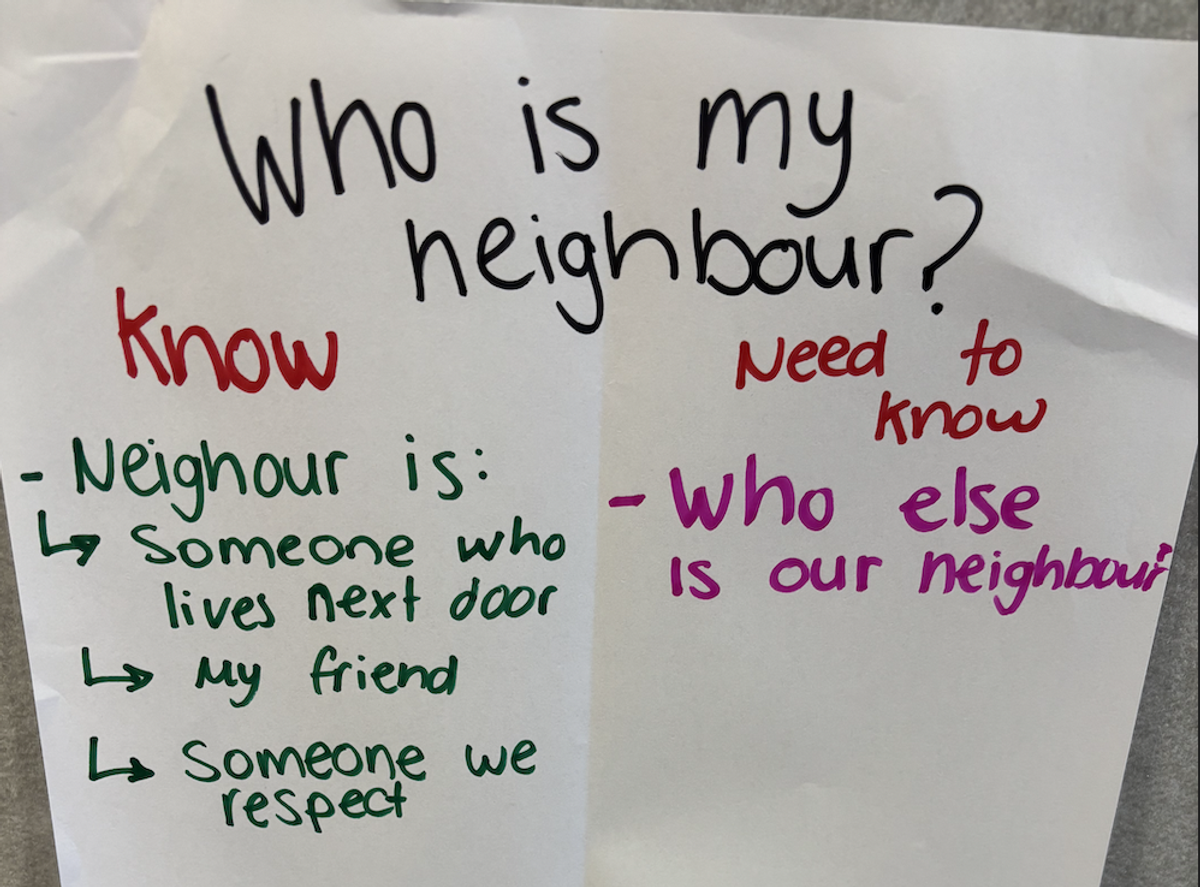 Who is my
neighbour?
Know
- Neighour is:
↳ Someone who
lives next door
↳ My friend
↳ Someone we
respect
Need to
know
- Who else
is our neighbour?